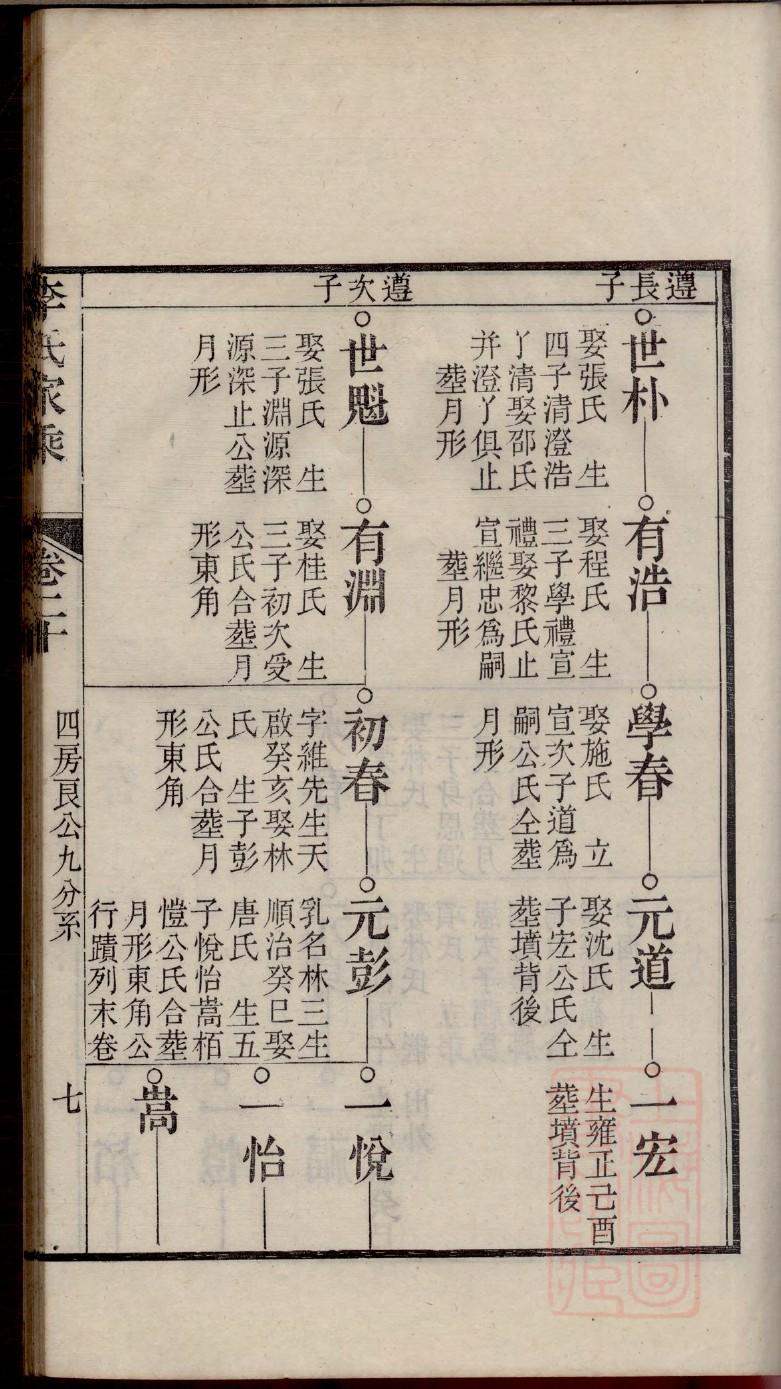 遵長子
世朴
娶張氏　生
四子清澄浩
丫清娶邵氏
并澄丫俱止
葬月形
有浩
娶程氏　生
三子學禮宣
禮娶黎氏止
宣繼忠為嗣
葬月形
學春
娶施氏　立
宣次子道為
嗣公氏仝葬
月形
元道
娶沈氏　生
子宏公氏仝
葬墳背後
一宏
生雍正己酉
葬墳背後
遵次子
世魁
娶張氏　生
三子淵源深
源深止公葬
月形
有淵
娶桂氏　生
三子初次受
公氏合葬月
形東角
初春
字維先生天
啟癸亥娶林
氏　生子彭
公氏合葬月
形東角
元彭
乳名林三生
順治癸巳娶
唐氏　生五
子悅怡嵩栢
愷公氏合葬
月形東角公
行蹟列末卷
一悅
一怡
嵩
李氏家乘
卷二十
四房艮公九分系
七